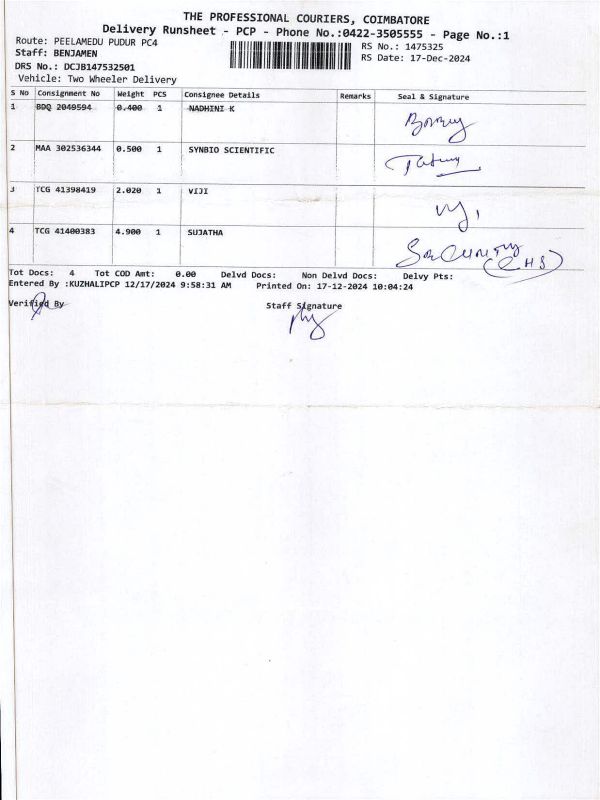 THE PROFESSIONAL COURIERS, COIMBATORE
Delivery Runsheet - PCP - Phone No.:0422-3505555 - Page No.:1
Route: PEELAMEDU PUDUR PC4
RS No.: 1475325
Staff: BENJAMEN
RS Date: 17-Dec-2024
DRS No.: DCJB147532501
Vehicle: Two Wheeler Delivery
S No Consignment No Weight PCS Consignee Details Remarks Seal & Signature
1 BDQ 2049594 0.400 1 NADHINI K
2 MAA 302536344 0.500 1 SYNBIO SCIENTIFIC
3 TCG 41398419 2.020 1 VIJI
4 TCG 41400383 4.900 1 SUJATHA
Security
(CHS)
Tot Docs: 4 Tot COD Amt: 0.00 Delvd Docs: Non Delvd Docs: Delvy Pts:
Entered By :KUZHALIPCP 12/17/2024 9:58:31 AM Printed On: 17-12-2024 10:04:24
Verified By
Staff Signature